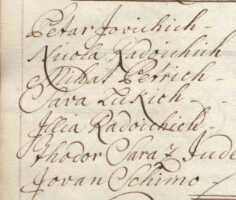 Petar Jovichich -
Nicola Radoichich
Mihat Petrich -
Sava Lukich -
Illia Radoichich -
Thodor Saraz Jude
Jovan Schimo -